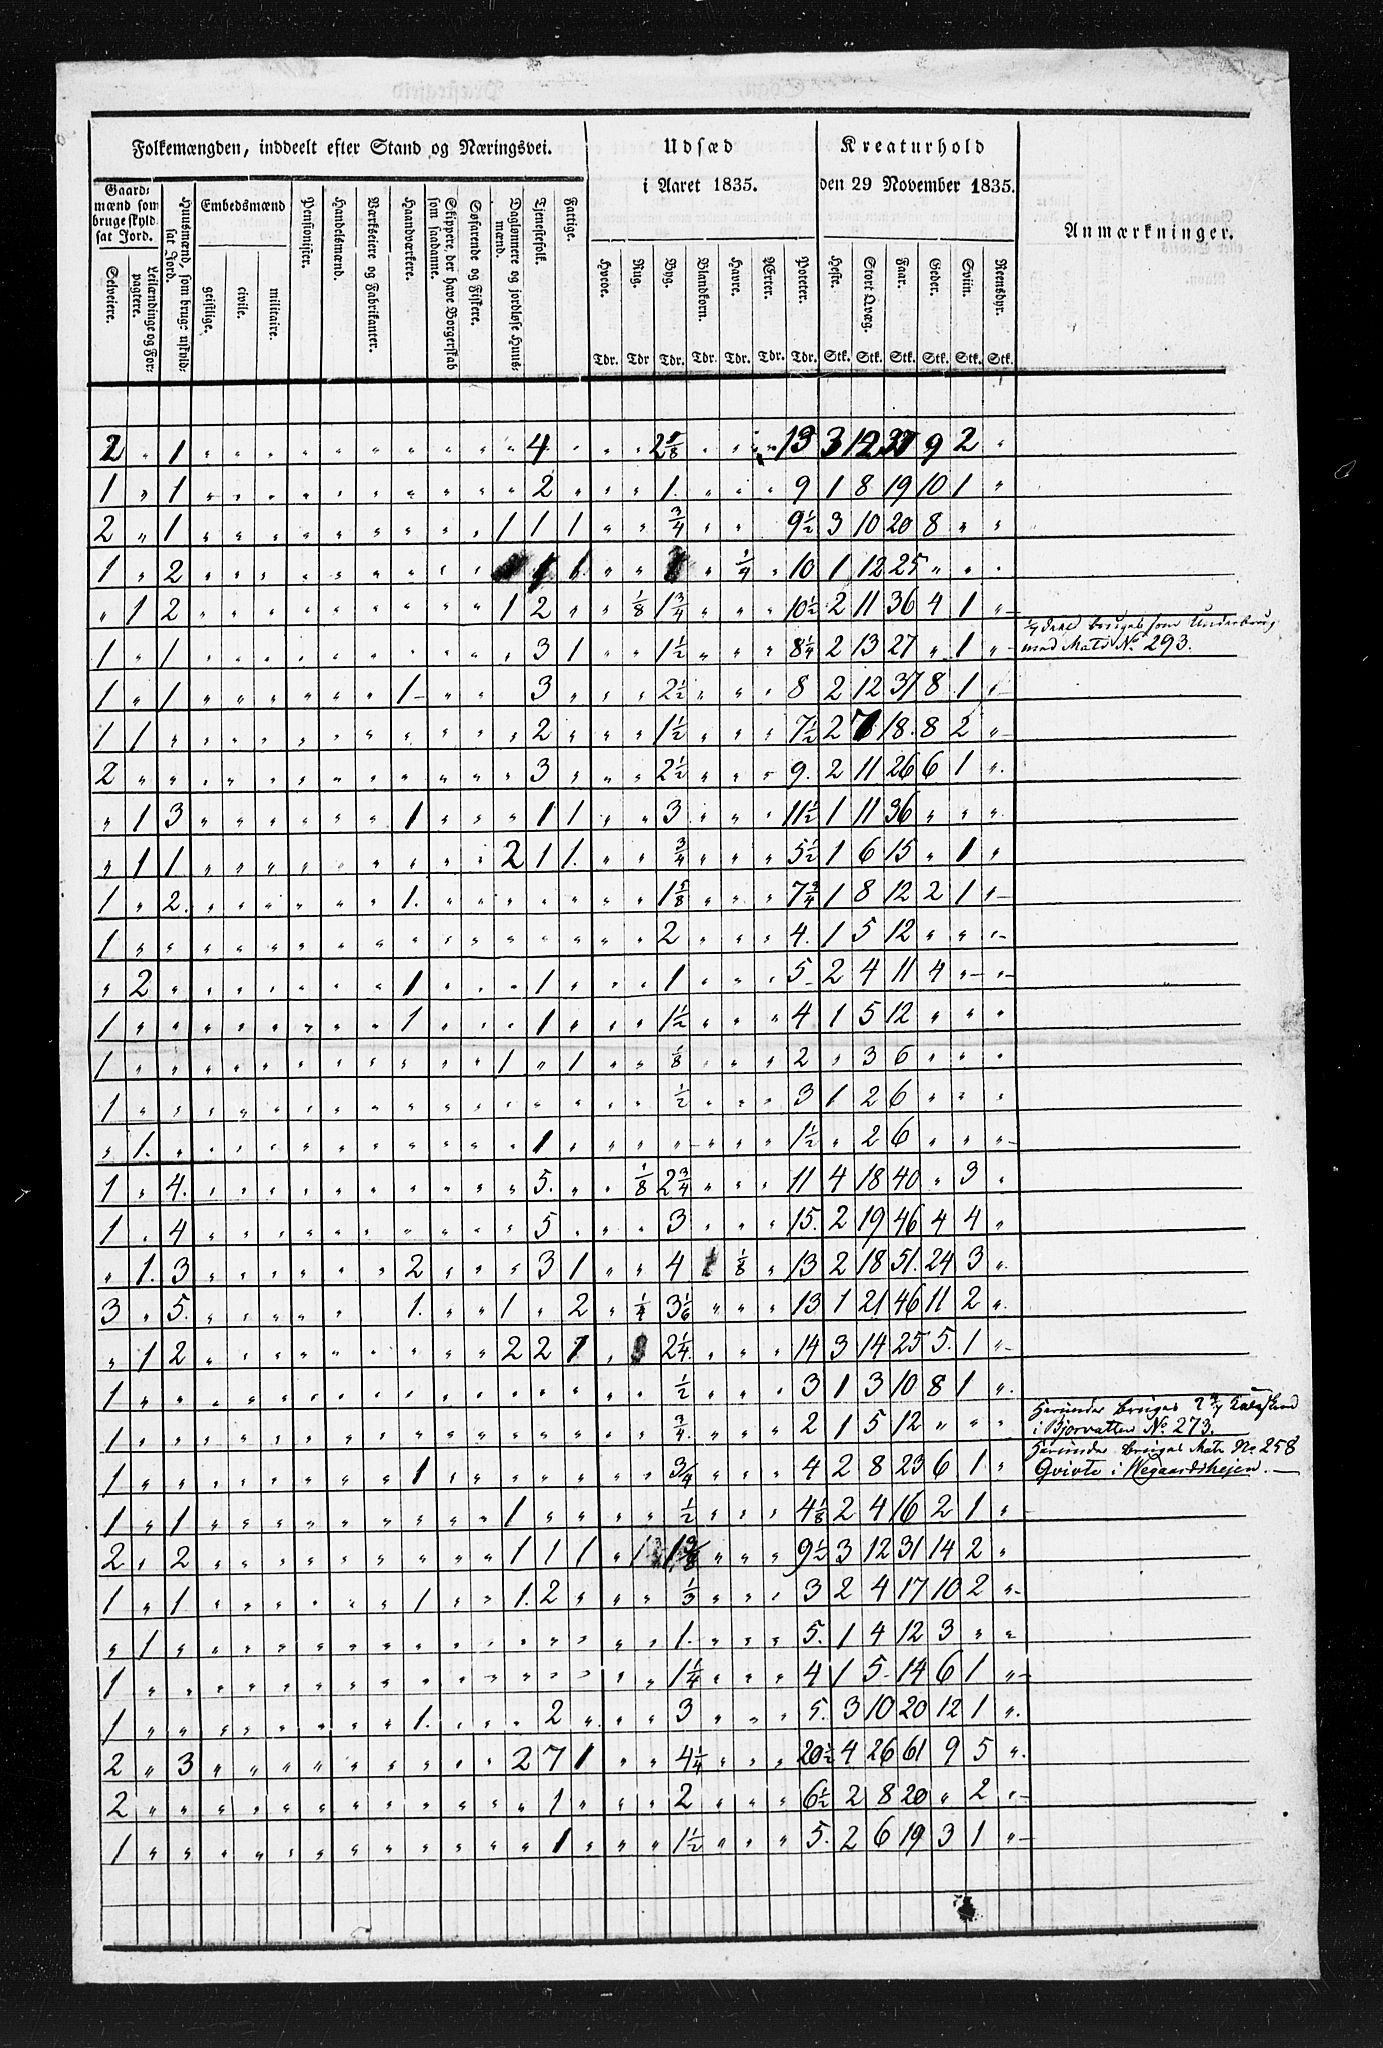 Folkemængden, inddeelt efter Stand og Næringsvei.
Udsæd
i Aaret 1835.
Kreaturhold
den 29 November 1835.
Anmærkninger.
Gaardmænd som bruge skyldsat Jord.
Selveiere.
Leilændinge og Forpagtere.
Huusmænd, som bruge uskyldsat Jord.
Embedsmænd
geistlige.
civile.
militaire.
Pensionister.
Handelsmænd.
Værkseiere og Fabrikanter.
Haandværkere.
Skippere, der have Borgerskab som saadanne.
Søfarende og Fiskere.
Daglønnere og jordløse Huusmænd.
Tjenestefolk.
Fattige.
Hvede. Rug. Byg. Blandkorn. Havre. Ærter. Poteter. Heste. Stort Qvæg. Faar. Geder. Sviin. Reensdyr.
Tdr. Tdr Tdr. Tdr. Tdr. Tdr. Tdr. Stk. Stk. Stk. Stk. Stk. Stk.
2 " 1 " " " " " " " " " " 4 " " " 2 5/8 " " " 13 3 12 37 9 2 "
1 " 1 " " " " " " " " " " 2 " " " 1. " " " 9 1 8 19 10 1 "
2 " 1 " " " " " " " " " 1 1 1 " " 3/4 " " 9 1/2 3 10 20 8 " "
1 " 2 " " " " " " " " " 1 1. " " " 1/4 " 10 1 12 25 " " "
" 1 2 " " " " " " " " " 1 2 " " 1/8 1 3/4 " " " 10 1/2 2 11 36 4 1 "
1 " 1 " " " " " " " " " " 3 1 " " 1 1/2 " " " 8 1/4 2 13 27 " 1 " bruges som Underbrug
med Matr No 293.
1 " 1 " " " " " " 1 " " " 3 " " " 2 1/2 " " " 8 2 12 37 8 1 "
1 1 " " " " " " " " " " " 2 " " " 1 1/2 " " " 7 1/2 2 7 18. 8 2 "
2 " " " " " " " " " " " " 3 " " " 2 1/2 " " " 9. 2 11 26 6 1 "
" 1 3 " " " " " " 1 " " " 1 1 " " 3 " " " 11 1/2 1 11 36 " " "
" 1 1 " " " " " " " " " 2 1 1. " " 3/4 " " " 5 1/2 1 6 15 " 1 "
1 " 2. " " " " " " 1. " " " " " " " 1 5/8 " " " 7 3/4 1 8 12 2 1 "
1 " " " " " " " " " " " " " " " " 2 " " " 4. 1 5 12 " " "
" 2 " " " " " " " 1 " " " 1 " " " 1 " " " 5 2 4 11 4 " "
1 " " " " " " " " 1 " " " 1 " " " 1 1/2 " " " 4 1 5 12 " " "
1 " " " " " " " " " " " 1 " 1 " " 1/8 " " " 2 " 3 6 " " "
1 " " " " " " " " " " " " " " " " 1/2 " " " 3 1 2 6 " " "
" 1. " " " " " " " " " " " 1 " " " " " " " 1 1/2 " 2 6 " " "
1 " 4. " " " " " " " " " " 5. " " 1/8 2 3/4 " " " 11 4 18 40 " 3 "
1 " 4 " " " " " " " " " " 5 " " " 3 " " " 15. 2 19 46 4 4 "
" 1. 3 " " " " " " 2 " " " 3 1 " " 4 1/8 " 13 2 18 51. 24 3 "
3 " 5. " " " " " " 1. " " 1 " 2 " 1/4 3 1/6 " " " 13 1 21 46 11 2 "
" 1 2 " " " " " " " " " 2 2 1 " 2 1/4. " " " 14 3 14 25 5. 1 "
1 " " " " " " " " " " " " " " " " 1/2 " " " 3 1 3 10 8 1 "
1 " " " " " " " " " " " " " " " " 3/4. " " " 2 1 5 12 " " " Herunder bruges
i Bjorvatten No 273.
1 " " " " " " " " 1 " " " " " " " 3/4 " " " 4 2 8 23 6 1 " Herunder bruges Matr No 258
Qvivte i Wegaardsheien.
1 " 1 " " " " " " " " " 1 " " " " 1/2 " " " 4 1/8 2 4 16 2 1 "
2 " 2 " " " " " " " " " 1 1 1 " 1 3/8 " " " 9 1/2 3 12 31 14 2 "
1 " 1 " " " " " " 1 " " 1. 2 " " " 1/3 " " " 3 2 4 17 10 2 "
" 1 " " " " " " " " " " " " " " " 1. " " " 5. 1 4 12 3 " "
1 " " " " " " " " " " " " " " " " 1 1/4 " " " 4 1 5 14 6 1 "
1 " " " " " " " " 1. " " " 2 " " " 3 " " " 5. 3 10 20 12 1 "
2 " 3 " " " " " " " " " 2 7 1 " " 4 1/4 " " " 20 1/2 4 26 61 9 5 "
2 " " " " " " " " " " " " 1 " " " 2 " " " 6 1/2 2 8 20 " 2 "
1 " " " " " " " " " " " " 1 " " " 1 1/2 " " " 5. 2 6 19 3 1 "